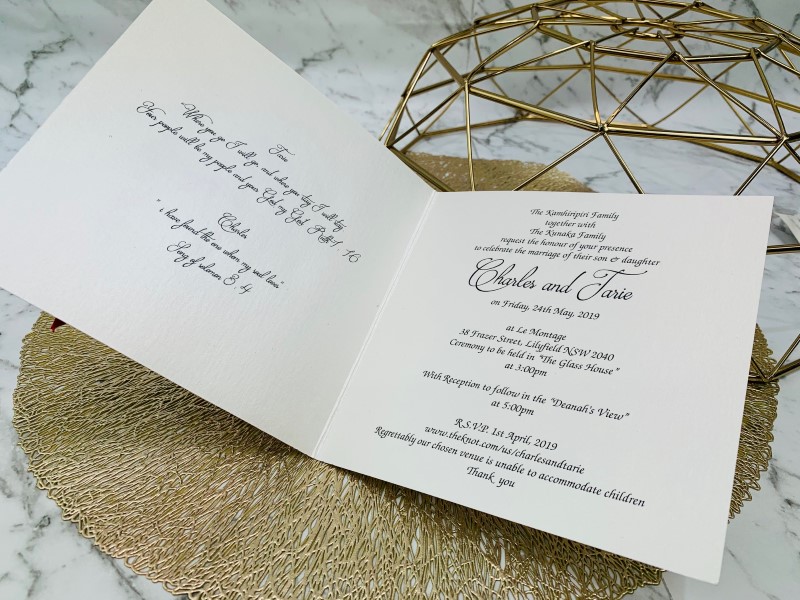 Tarie
"Where you go I will go and where you stay I will stay.
Your people will be my people and your God my God" Ruth 1 : 16
Charles
" i have found the one whom my soul loves"
Song of solomon 3 : 4
The Kamhiripiri Family
together with
The Kunaka Family
request the honour of your presence
to celebrate the marriage of their son & daughter
Charles and Tarie
on Friday, 24th May, 2019
at Le Montage
38 Frazer Street, Lilyfield NSW 2040
Ceremony to be held in "The Glass House"
at 3:00pm
With Reception to follow in the "Deanah's View"
at 5:00pm
R.S.V.P. 1st April, 2019
www.theknot.com/us/charlesandtarie
Regrettably our chosen venue is unable to accommodate children
Thank you